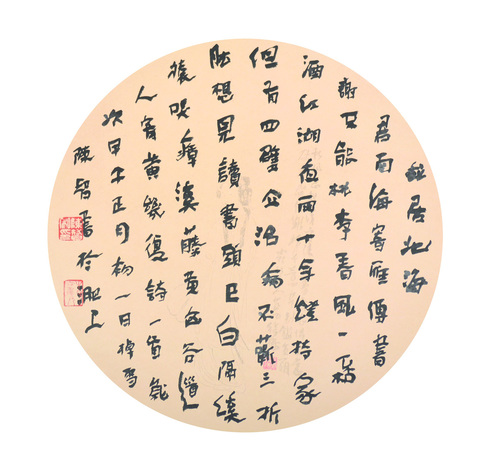 我居北海
君南海寄雁傳書
謝不能桃李春風一杯
酒江湖夜雨十年燈持家
但有四壁立治病不蘄三折
肱想見讀書頭已白隔溪
猿哭瘴溪藤黄山谷道
人寄黄幾復詩一首歲
次甲午正月初一日
陳智書於淝上